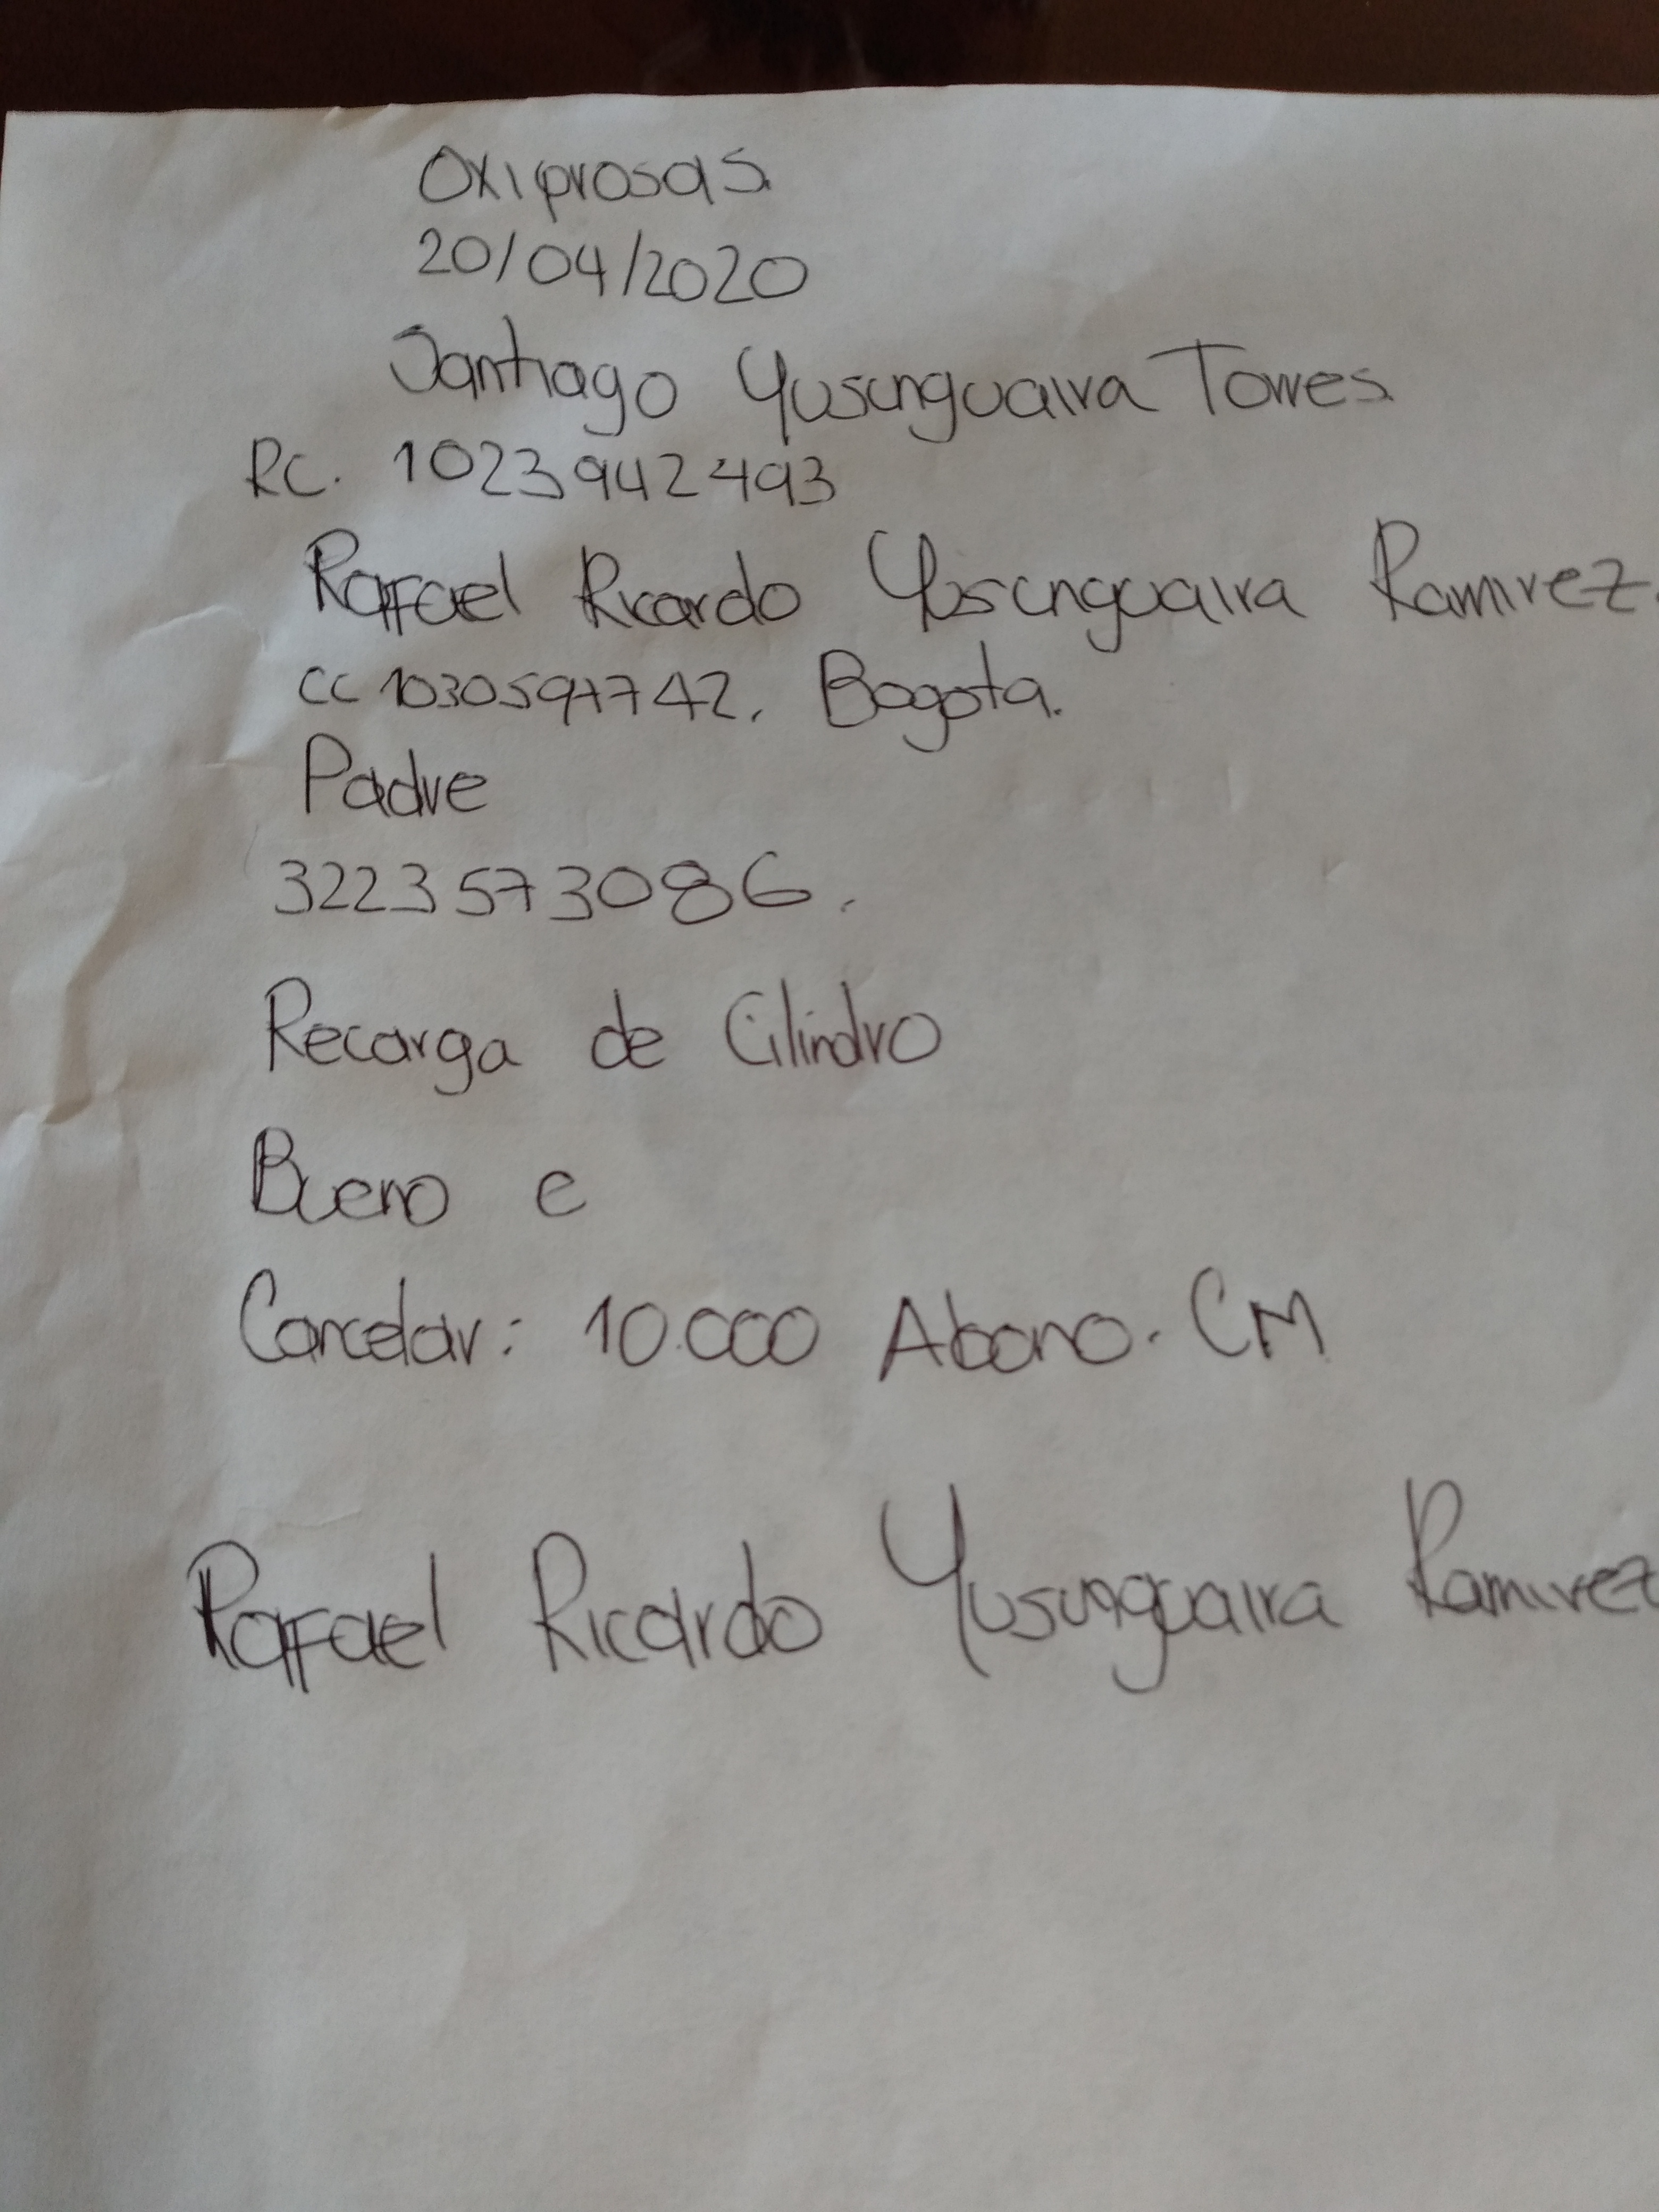 Oxiprosas.
20/04/2020
Santiago Yusunguaira Torres.
RC. 10239424493
Rafael Ricardo Yusunguaira Ramirez.
CC 1030597742. Bogota.
Padre
3223573086.
Recarga de Cilindro
Bueno e
Cancelar: 10.000 Abono. CM
Rafael Ricardo Yusunguaira Ramirez